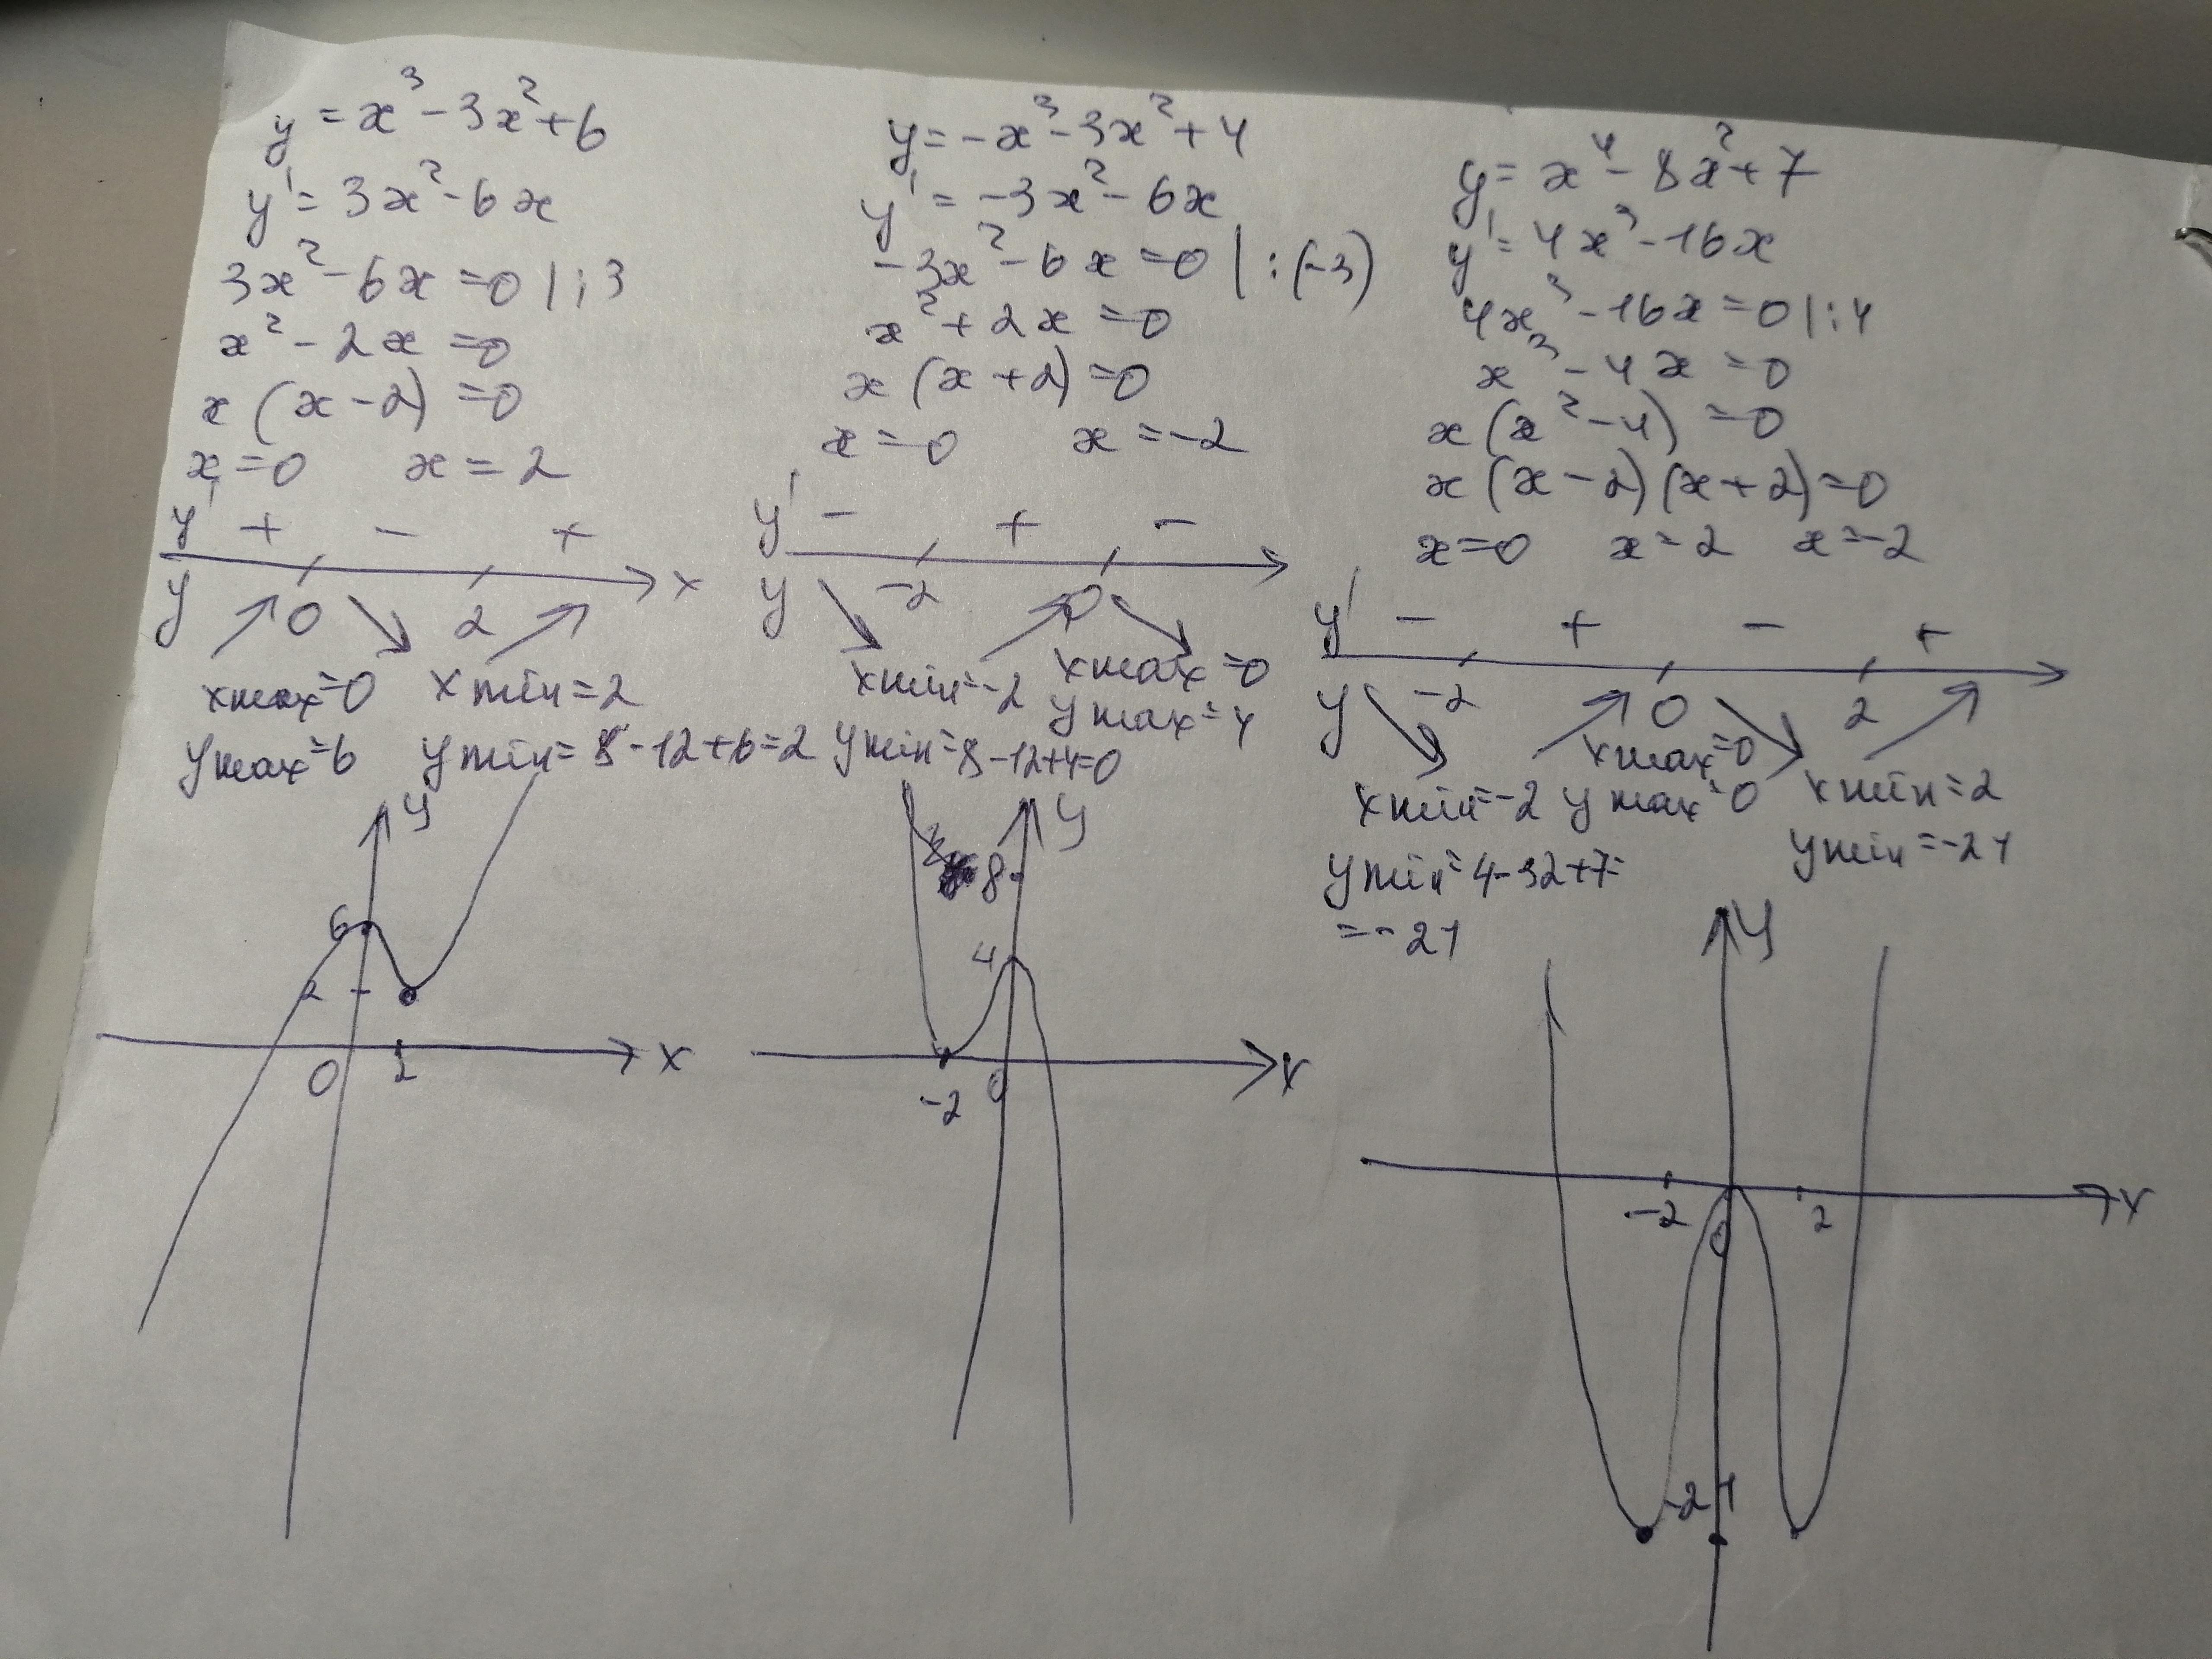 y = x³ - 3x² + 6
y' = 3x² - 6x
3x² - 6x = 0 | : 3
x² - 2x = 0
x (x - 2) = 0
x = 0 x = 2
y' + - +
x
y 0 2
xmax = 0 xmin = 2
ymax = 6 ymin = 8 - 12 + 6 = 2
y
6
2
0 2 x
y = -x³ - 3x² + 4
y' = -3x² - 6x
-3x² - 6x = 0 | : (-3)
x² + 2x = 0
x (x + 2) = 0
x = 0 x = -2
y' - + -
y -2 0
xmin = -2 xmax = 0
ymax = 4
ymin = 8 - 12 + 4 = 0
y
8
4
-2 0 x
y = x⁴ - 8x² + 7
y' = 4x³ - 16x
4x³ - 16x = 0 | : 4
x³ - 4x = 0
x (x² - 4) = 0
x (x - 2) (x + 2) = 0
x = 0 x = 2 x = -2
y' - + - +
y -2 0 2
xmax = 0
xmin = -2 ymax = 0 xmin = 2
ymin = 4 - 32 + 7 =
= -21
ymin = -21
y
-2 0 2 x
-21